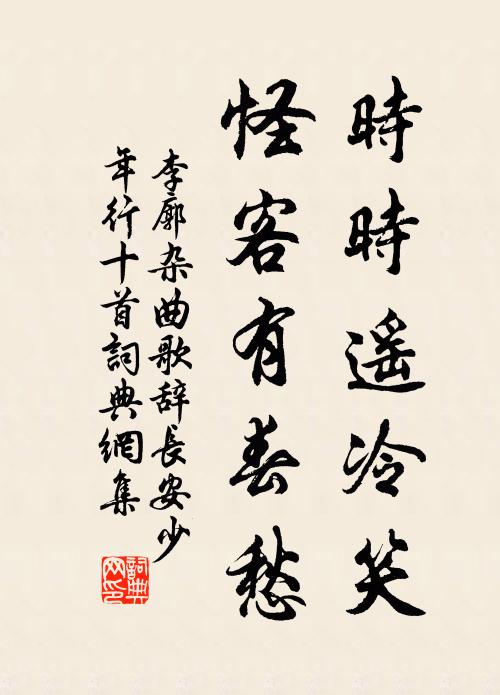 時時遥冷笑
怪客有春愁
李廓杂曲歌辞長安少
年行十首詞典網集
詞典
网印